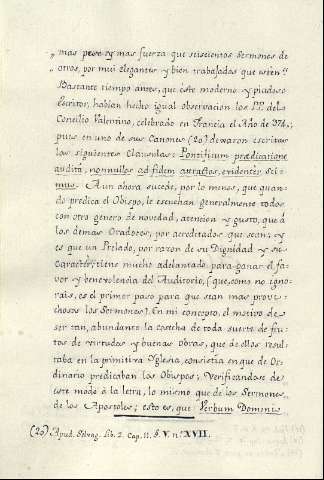 „ mas peso y mas fuerza que seiscientos Sermones de
„ otros, por mui elegantes y bien trabajados que esten."
Bastante tiempo antes, que este moderno y piadoso
Escritor, habian hecho igual observacion los PP. del
Concilio Valentino, celebrado en Francia el Año de 374,
pues en uno de sus Canones (20) dexaron escritas
las siguientes Clausulas: Pontificum prædicatione
audita, nonnullos ad fidem attractos, evidenter sci-
mus. Aun ahora sucede, por lo menos, que quan-
do predica el Obispo, le escuchan generalmente todos
con otro genero de novedad, atencion y gusto, que á
los demas Oradores, por acreditados que sean; y
es que un Prelado, por razon de su Dignidad y su
caracter, tiene mucho adelantado para ganar el fa-
vor y benevolencia del Auditorio, (que, como no igno-
rais, es el primer paso para que sean mas prove-
chosos los Sermones). En mi concepto, el motivo de
ser tan abundante la cosecha de toda suerte de fru-
tos de virtudes y buenas obras, que de ellos resul-
taba en la primitiva Yglesia, consistia en que de Or-
dinario predicaban los Obispos; Verificandose de
este modo á la letra, lo mismo que de los Sermones
de los Apostoles; esto es, que Verbum Domini
(20) Apud Lib. 2. Cap. 11. §. V. nº XVII.